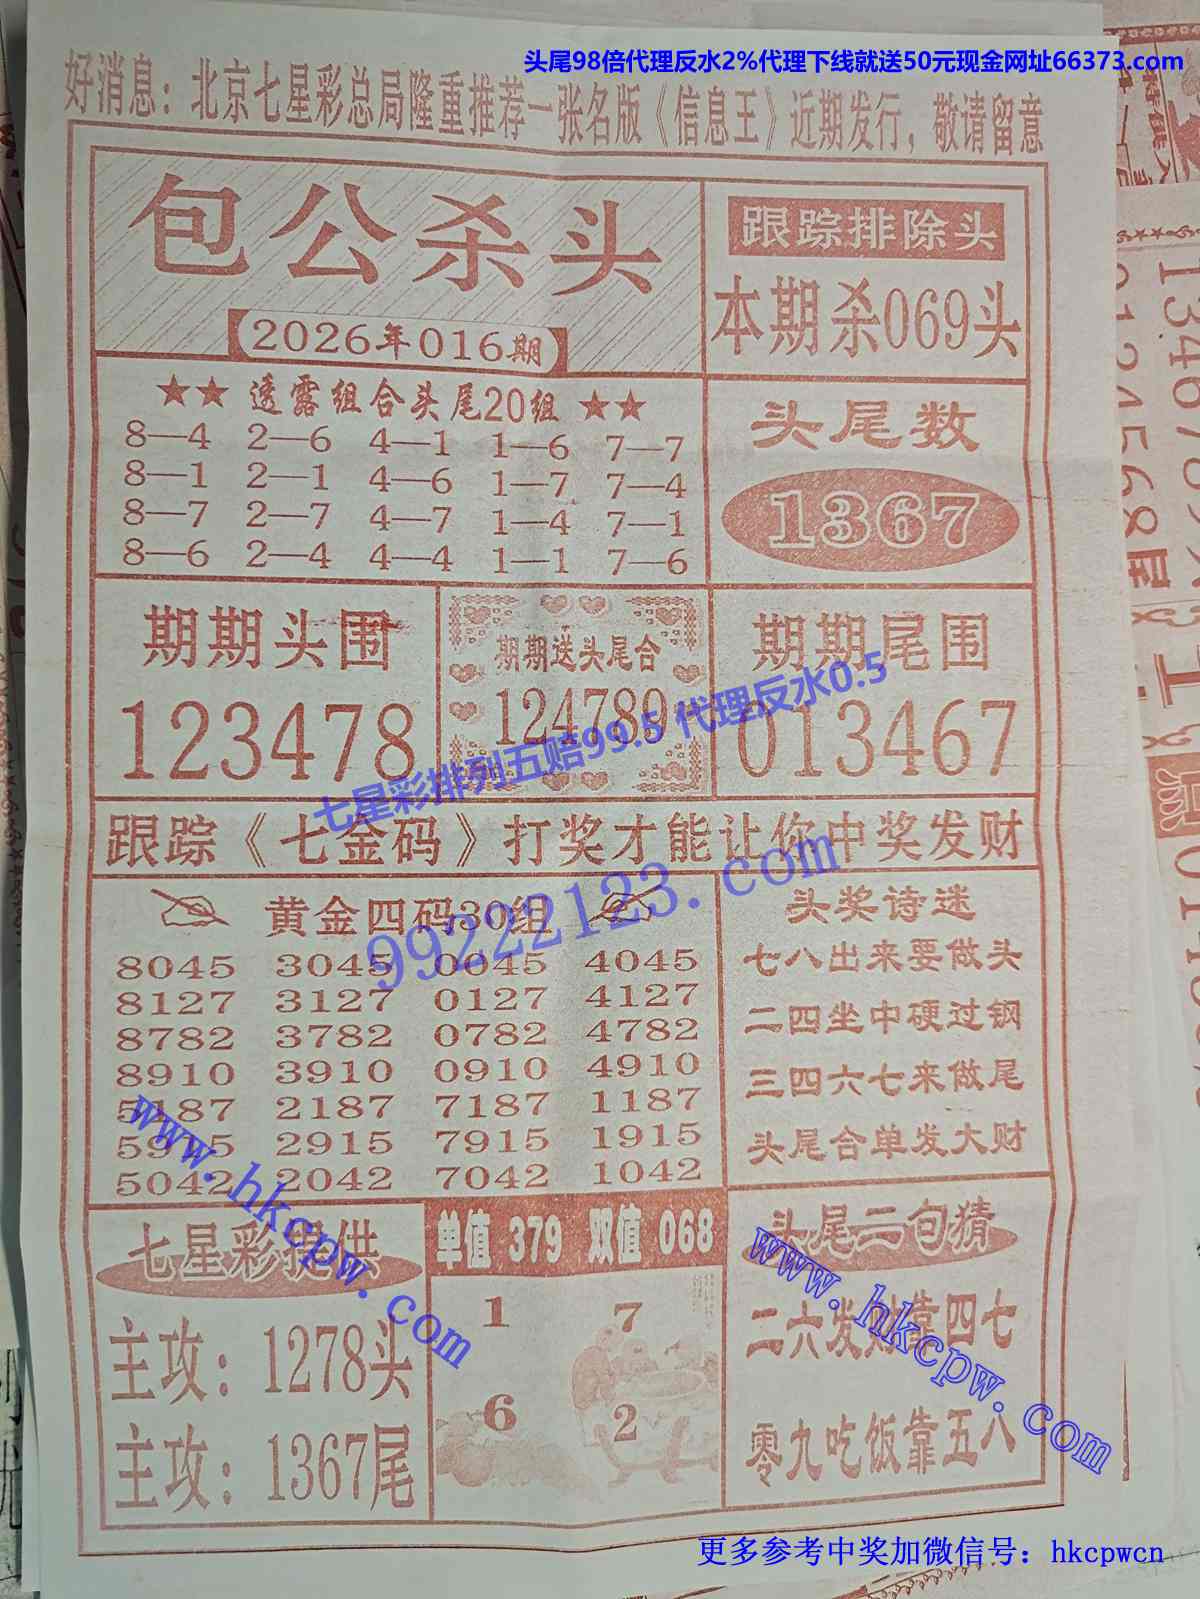 头尾98倍代理反水2%代理下线就送50元现金网址66373.com
好消息：北京七星彩总局隆重推荐一张名版《信息王》近期发行，敬请留意
包公杀头
【2026年016期】
跟踪排除头
本期杀069头
★★ 透露组合头尾20组 ★★
8—4 2—6 4—1 1—6 7—7
8—1 2—1 4—6 1—7 7—4
8—7 2—7 4—7 1—4 7—1
8—6 2—4 4—4 1—1 7—6
头尾数
1367
期期头围
123478
期期送头尾合
124789
期期尾围
013467
七星彩排列五赔99.5 代理反水0.5
跟踪《七金码》打奖才能让你中奖发财
99222123.com
黄金四码30组
8045 3045 0045 4045
8127 3127 0127 4127
8782 3782 0782 4782
8910 3910 0910 4910
5187 2187 7187 1187
5915 2915 7915 1915
5042 2042 7042 1042
头奖诗迷
七八出来要做头
二四坐中硬过钢
三四六七来做尾
头尾合单发大财
www.hkcpw.com
七星彩提供
主攻：1278头
主攻：1367尾
单值 379 双值 068
1 7
6 2
头尾二句猜
二六发财靠四七
零九吃饭靠五八
www.hkcpw.com
更多参考中奖加微信号：hkcpwcn